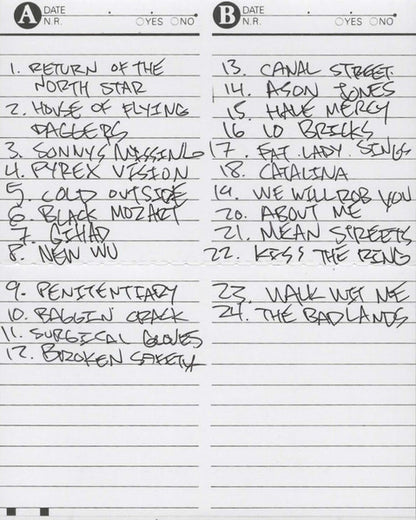 A DATE
N.R. YES NO
1. RETURN OF THE
NORTH STAR
2. HOUSE OF FLYING
DAGGERS
3. SONNYS MISSING
4. PYREX VISION
5. COLD OUTSIDE
6. BLACK MOZART
7. GIHAD
8. NEW WU
9. PENITENTIARY
10. BAGGIN CRACK
11. SURGICAL GLOVES
12. BROKEN SAFETY
B DATE
N.R. YES NO
13. CANAL STREET.
14. ASON JONES
15. HAVE MERCY
16 10 BRICKS
17. FAT LADY SINGS
18. CATALINA
19. WE WILL ROB YOU
20. ABOUT ME
21. MEAN STREETS
22. KISS THE RING
23. WALK WIT ME
24. THE BADLANDS